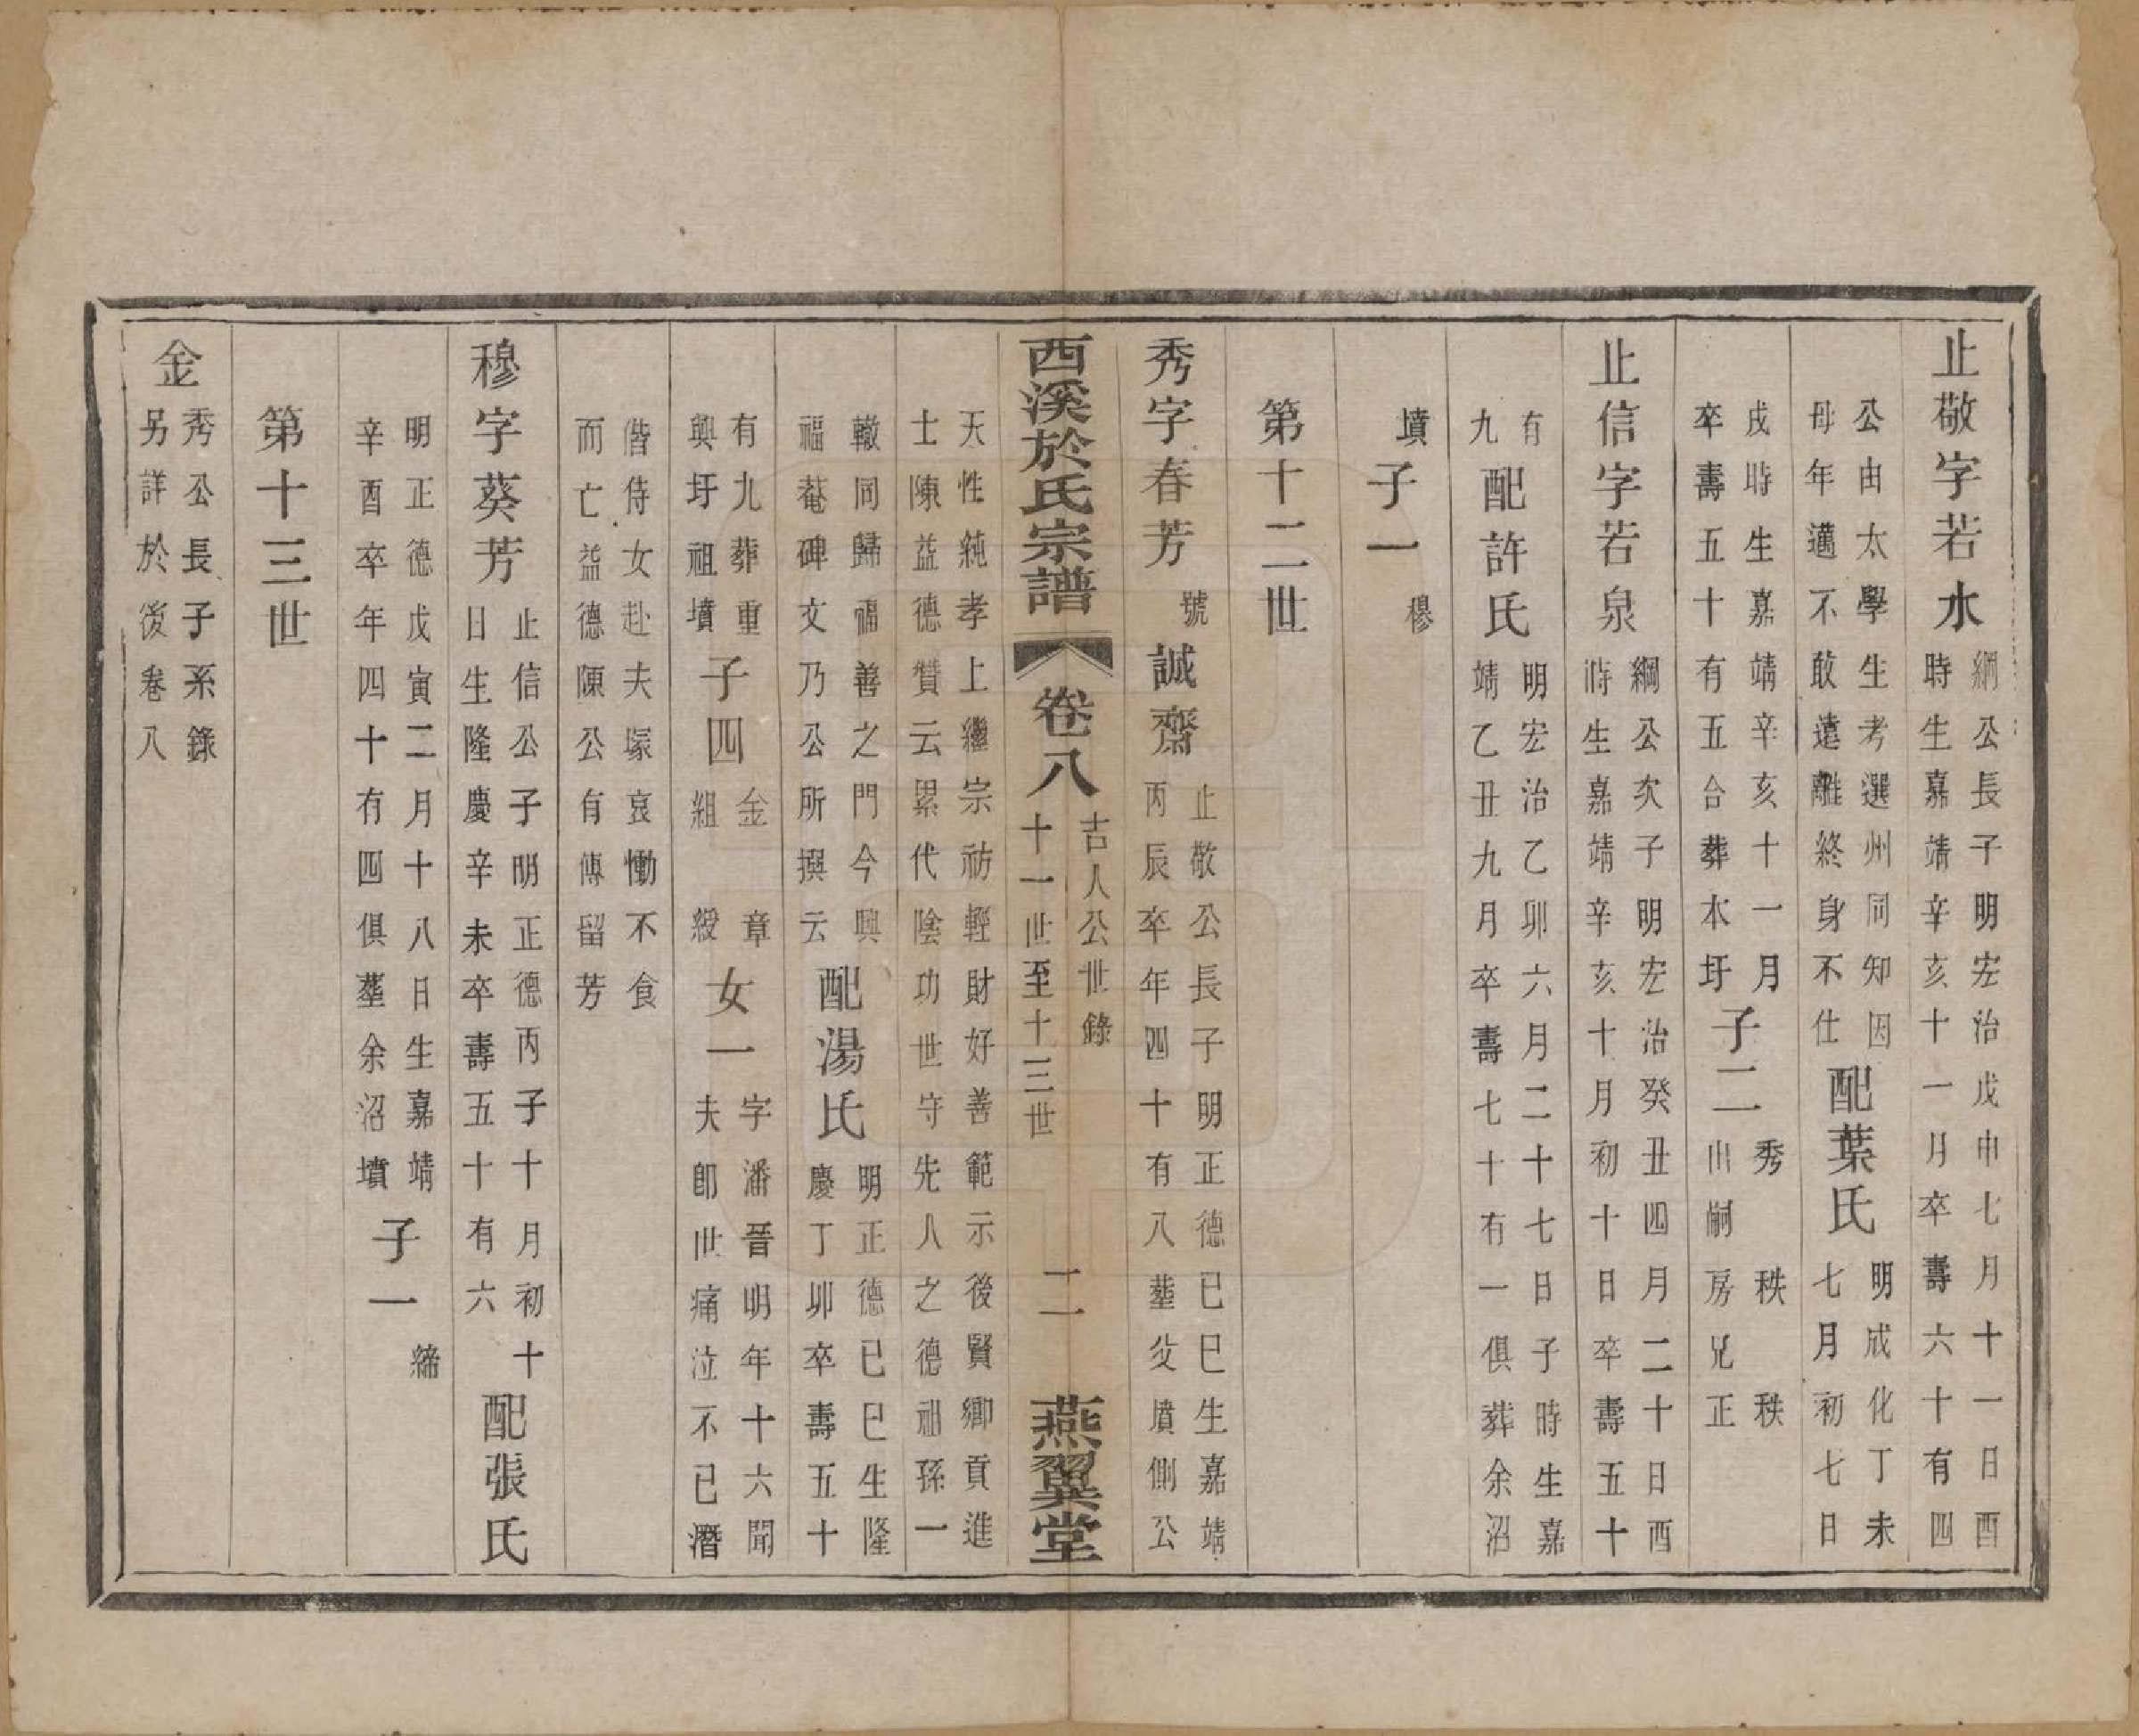 止敬字若水 綱公長子明宏治戊申七月十一日酉
時生嘉靖辛亥十一月卒壽六十有四
公由太學生考選州同知因
母年邁不敢遠離終身不仕 配葉氏 明成化丁未
七月初七日
戌時生嘉靖辛亥十一月
卒壽五十有五合葬木圩 子二 秀 秩 秩
出嗣房兄正
止信字若泉 綱公次子明宏治癸丑四月二十日酉
時生嘉靖辛亥十月初十日卒壽五十
有
九 配許氏 明宏治乙卯六月二十七日子時生嘉
靖乙丑九月卒壽七十有一俱葬余沼
墳 子一 穆
第十二世
秀字春芳 號誠齋 止敬公長子明正德己巳生嘉靖
丙辰卒年四十有八塟父墳側公
西溪於氏宗譜 卷八 吉人公世錄
十一世至十三世 二 燕翼堂
天性純孝上繼宗祊輕財好善範示後賢鄉貢進
士陳益德贊云累代陰功世守先人之德祖孫一
轍同歸福善之門今興
福菴碑文乃公所撰云 配湯氏 明正德己巳生隆
慶丁卯卒壽五十
有九葬重
興圩祖墳 子四 金 章
組 綬 女一 字潘晉明年十六聞
夫卽世痛泣不已潛
偕侍女赴夫塚哀慟不食
而亡益德陳公有傳留芳
穆字葵芳 止信公子明正德丙子十月初十
日生隆慶辛未卒壽五十有六 配張氏
明正德戊寅二月十八日生嘉靖
辛酉卒年四十有四俱塟余沼墳 子一 締
第十三世
金 秀公長子系錄
另詳於後卷八